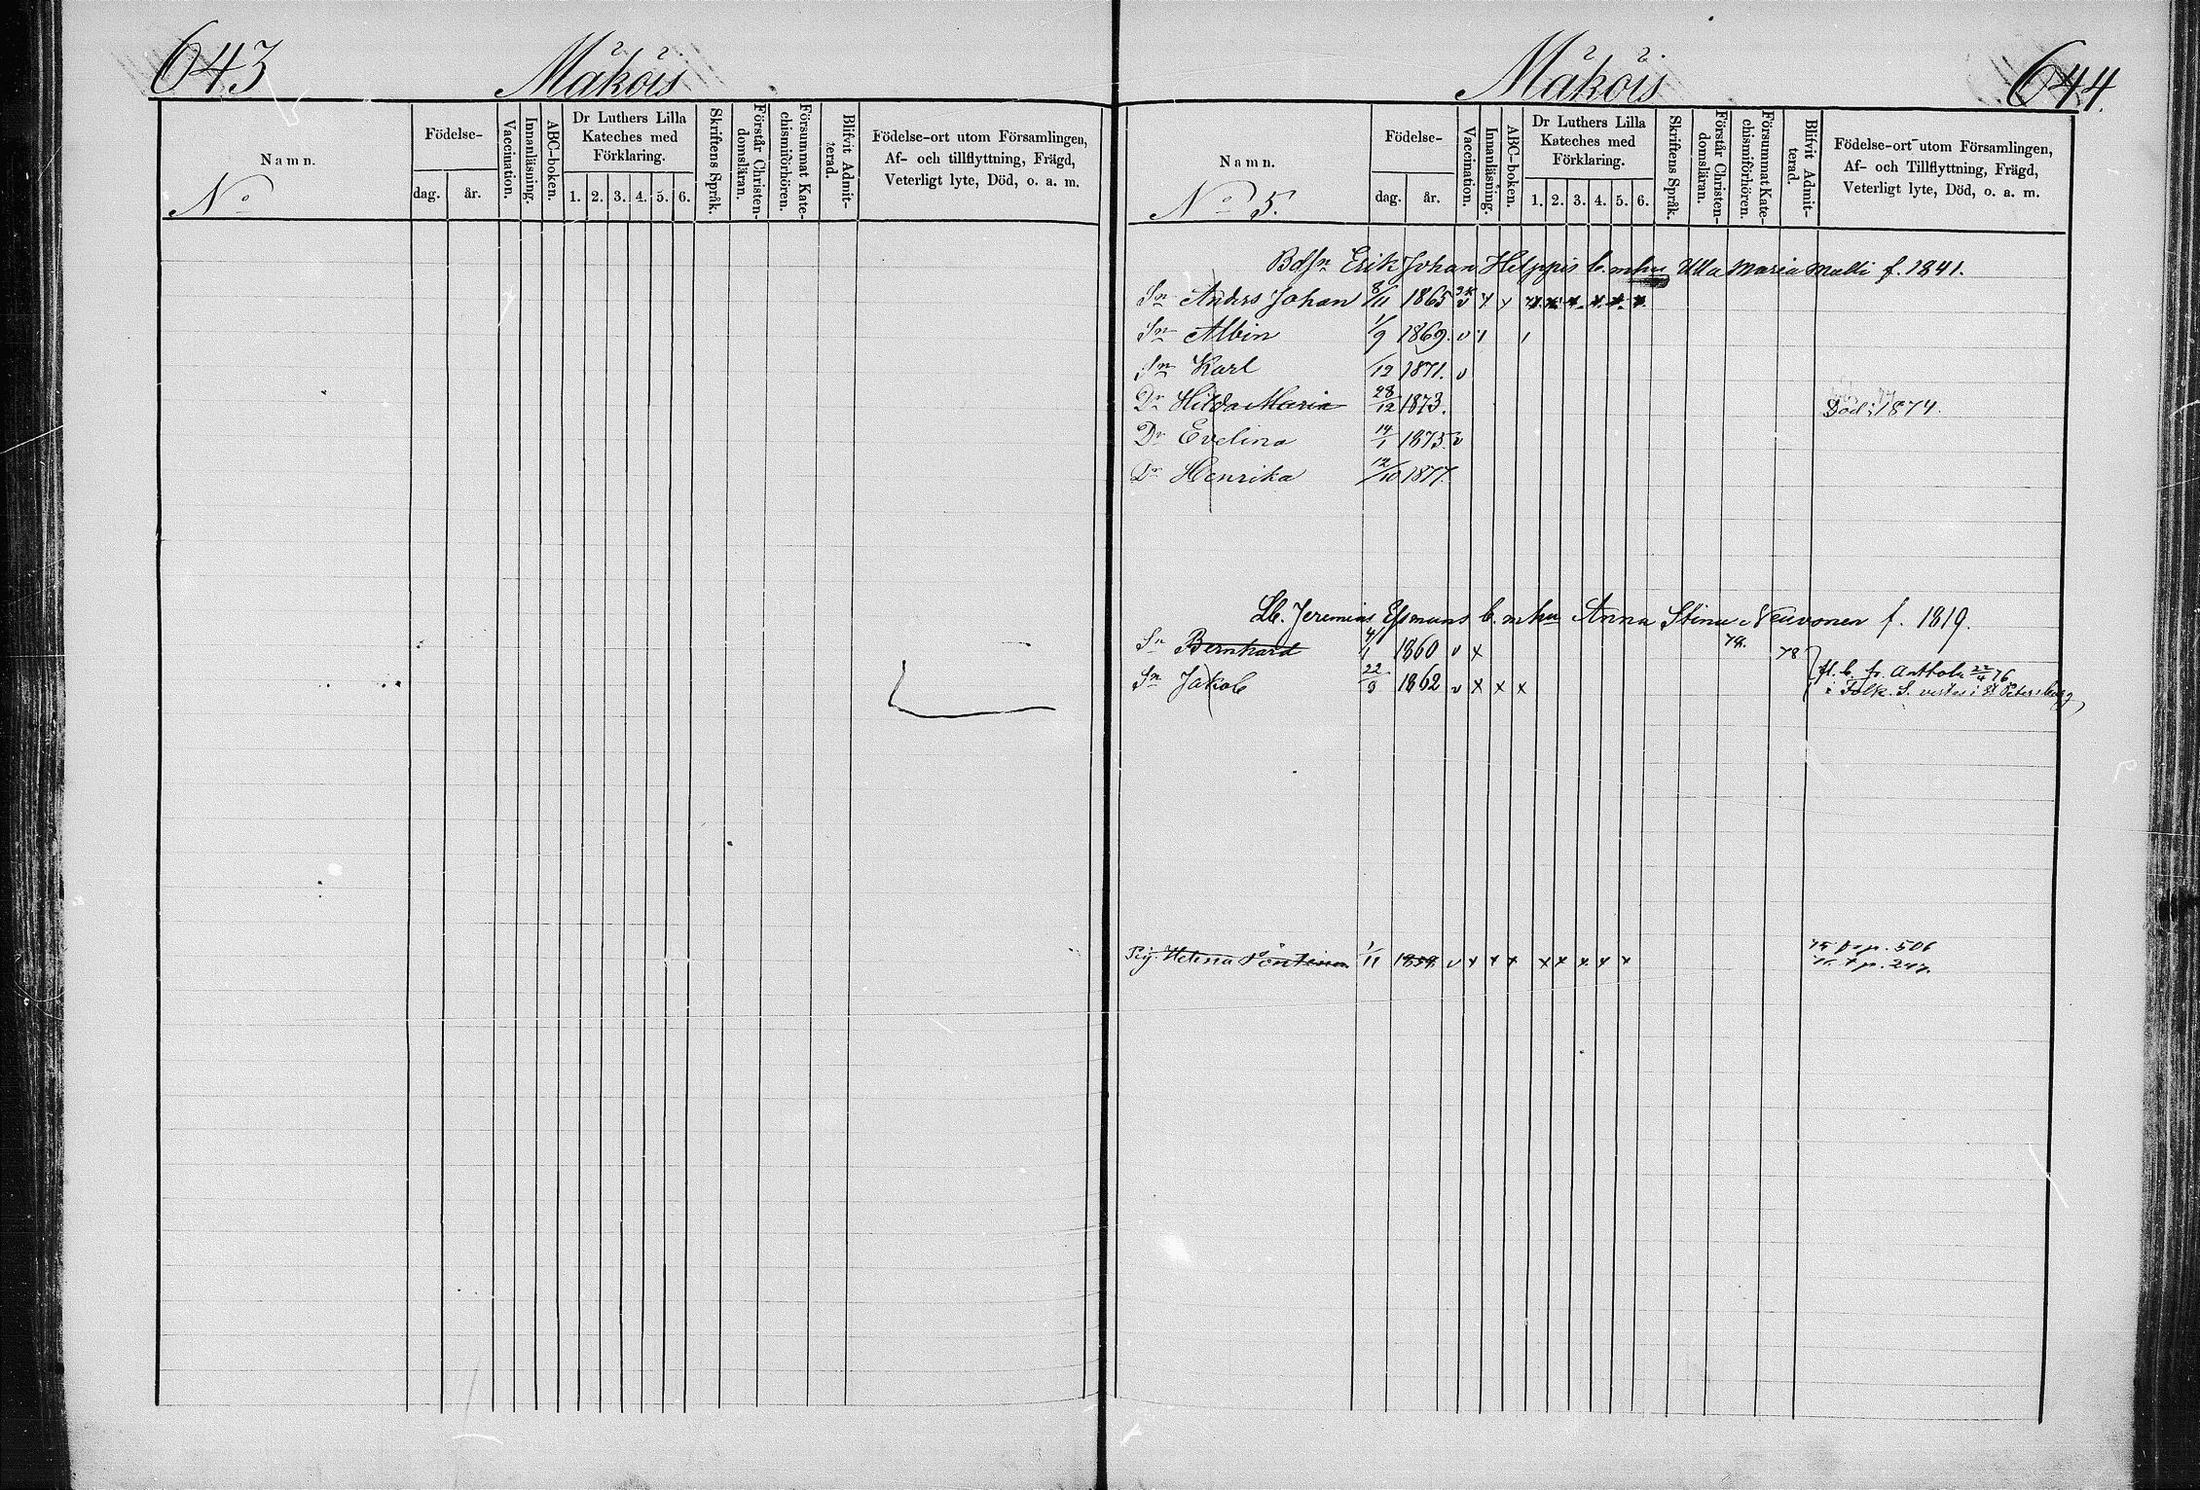 643
Mäköis
Namn.
No
Födelse-
dag.
år.
Vaccination.
Innanläsning.
ABC-boken.
Dr Luthers Lilla
Kateches med
Förklaring.
1. 2. 3. 4. 5. 6.
Skriftens Språk.
Förstår Christen-
domsläran.
Försummat Kate-
chismiförhören.
Blifvit Admit-
terad.
Födelse-ort utom Församlingen,
Af- och tillflyttning, Frägd,
Veterligt lyte, Död, o. a. m.
Mäköis
644.
Namn.
No 5.
Födelse-
dag.
år.
Vaccination.
Innanläsning.
ABC-boken.
Dr Luthers Lilla
Kateches med
Förklaring.
1. 2. 3. 4. 5. 6.
Skriftens Språk.
Förstår Christen-
domsläran.
Försummat Kate-
chismiförhören.
Blifvit Admit-
terad.
Födelse-ort utom Församlingen,
Af- och Tillflyttning, Frägd,
Veterligt lyte, Död, o. a. m.
Erik Johan Helppis b. m hu Ulla Maria Malli f. 1841.
Sn Anders Johan 8/11 1865 v x x x x x x x x
Sn Albin 1/9 1869. v
Sn Karl /12 1871. v
Dr Hilda Maria 28/12 1873. Död 1874.
Dr Evelina 14/1 1875. v
Dr Henrika 12/10 1877.
Lb. Jeremias b. m hu Anna Stina Neuvonen f. 1819.
Sn Bernhard 4/1 1860 v x 78. 78
Sn Jakob 22/9 1862 v x x x
fl. b. fr. 22/4 76
i Folk. S. vistas i St Petersburg
Pig. Helena 1/11 1859. v x x x x x x x x
p. 506
p. 247.